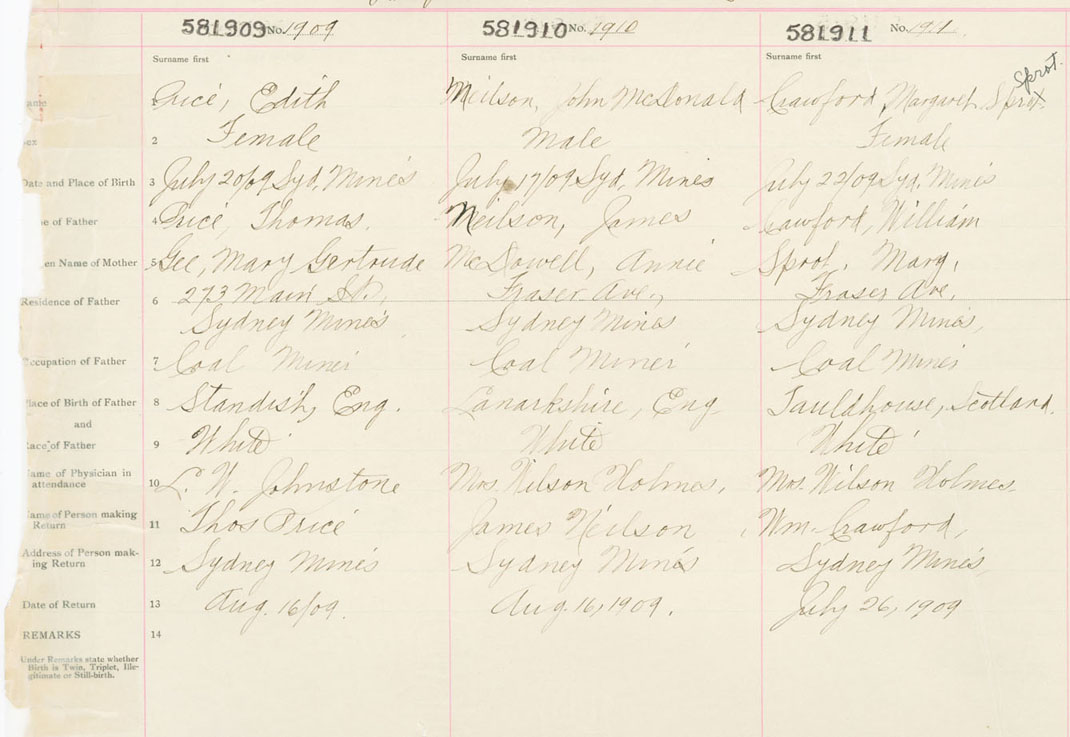 581909 No. 1909
581910 No. 1910
581911 No.
Surname first
Surname first
Surname first
Sprot.
1 Price, Edith
Neilson, John McDonald
Crawford, Margaret Sprot
2 Female
Male
Female
Date and Place of Birth 3 July 20/09 Syd. Mines
July 17/09 Syd. Mines
July 22/09 Syd. Mines
of Father 4 Price, Thomas.
Neilson, James
Crawford, William
en Name of Mother 5 Gee, Mary Gertrude
McDowell, Annie
Sprot, Marg.
Residence of Father 6 273 Main St.,
Sydney Mines
Fraser Ave.,
Sydney Mines
Fraser Ave.
Sydney Mines,
Occupation of Father 7 Coal Miner
Coal Miner
Coal Miner
Place of Birth of Father 8 Standish, Eng.
Lanarkshire, Eng
Fauldhouse, Scotland.
and
Race of Father 9 White
White
White
Name of Physician in
attendance 10 L. W. Johnstone
Mrs. Wilson Holmes,
Mrs. Wilson Holmes.
Name of Person making
Return 11 Thos Price
James Neilson
Wm. Crawford,
Address of Person mak-
ing Return 12 Sydney Mines
Sydney Mines
Sydney Mines,
Date of Return 13 Aug. 16/09.
Aug. 16, 1909.
July 26, 1909
REMARKS 14
Under Remarks state whether
Birth is Twin, Triplet, Ille-
gitimate or Still-birth.